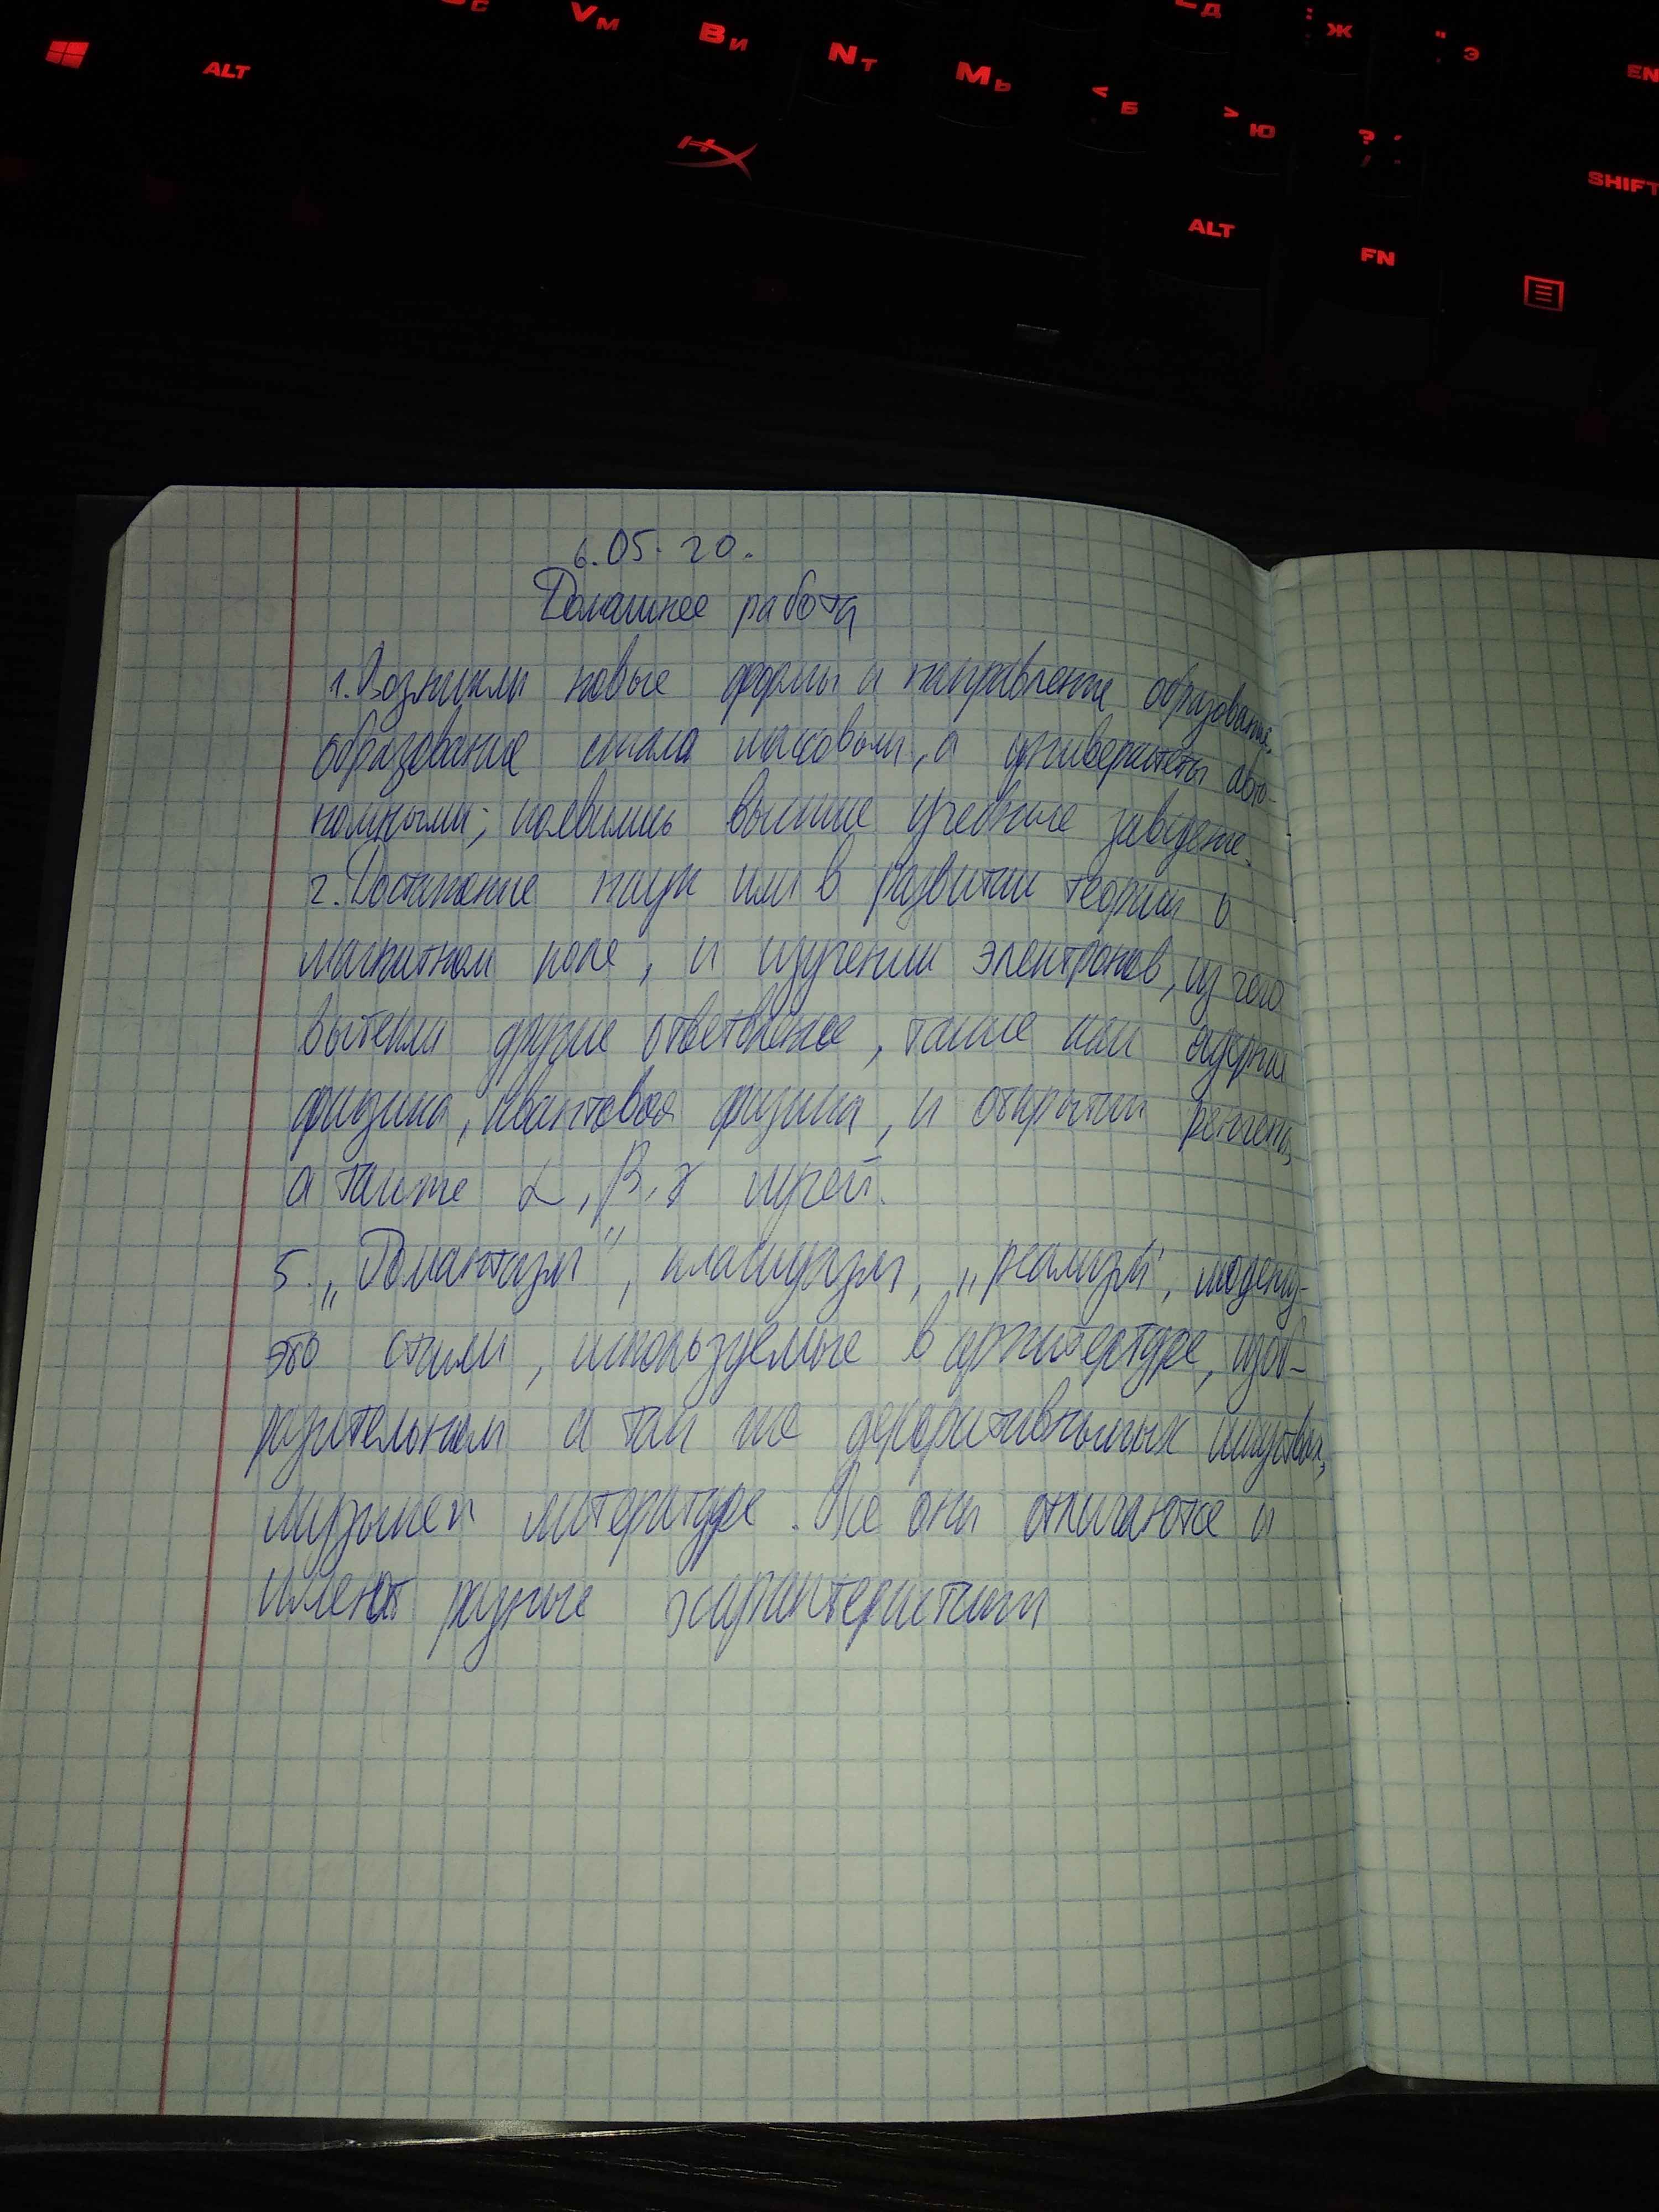 ALT
V М
B И
N Т
M Ь
< Б
> Ю
Д
: Ж
" Э
EN
SHIFT
ALT
FN
HX
6.05.20.
Домашнее работа
1. Возникли новые формы и направление образование,
образование стала массовым, а университеты авто-
номными, появились высшие учебные заведение.
2. Достижение наук или в развитии теории о
магнитном поле, и изучении электронов, из чего
вытекли другие ответвление, такие как ядерна
физика, квантовая физика, и открытии рентгена,
а также α, β, γ лучей.
5. „Романтизм", классицизм, „реализм",
это стили, используемые в архитектуре, изоб-
разительном а так же искусствах,
музыке и литературе. Все они отличаются и
имеют разные характеристики